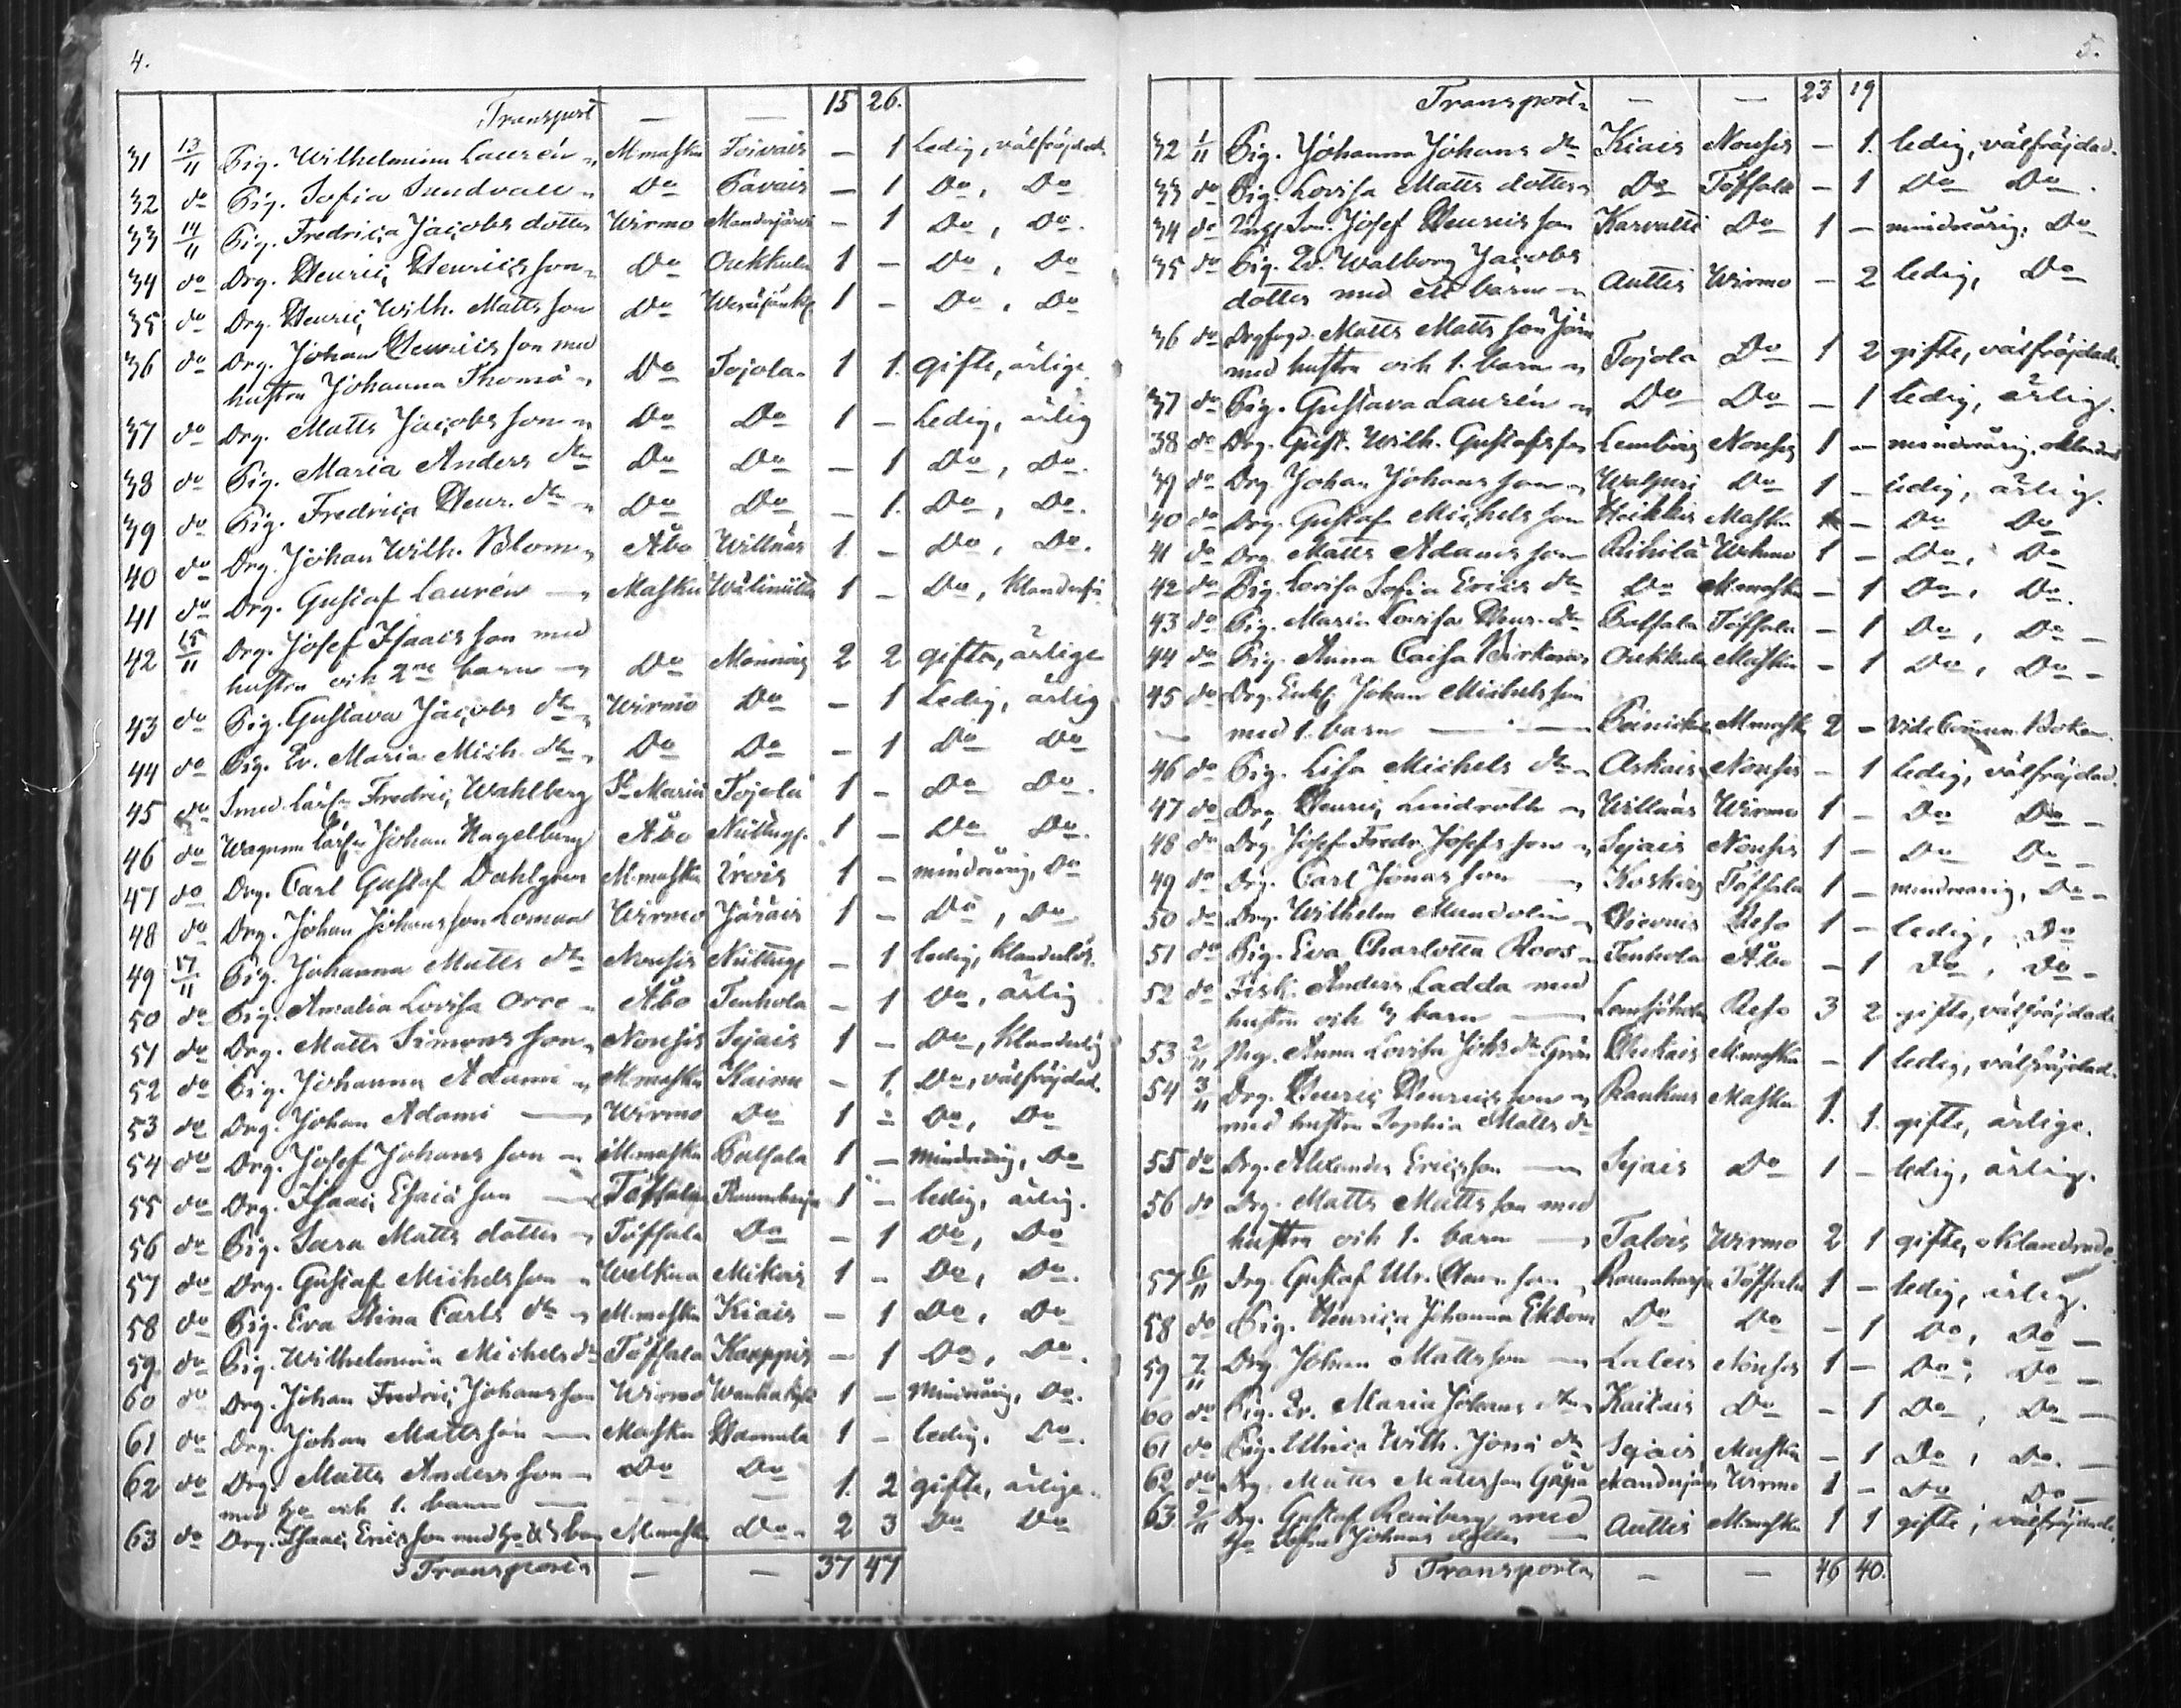 4.
Transport — — 15 26.
31 13/11 Pig. Wilhelmina Laurén M:masku Toivais — 1 Ledig, välfräjdad.
32 do Pig. Sofia Sundvall Do Pavais — 1 Do, Do
33 14/11 Pig. Fredrica Jacobs dotter Wirmo — 1 Do, Do.
34 do Drg. Henric Henricsson Do Ockkula 1 — Do, Do
35 do Drg. Henric Wilh. Mattsson Do 1 — Do, Do
36 do Drg. Johan Henricsson med
hustru Johanna Thomæ Do Tojola 1 1. gifte, ärlige.
37 do Drg. Matts Jacobsson Do Do 1 — Ledig, ärlig
38 do Pig. Maria Anders dr Do Do — 1 Do, Do.
39 do Pig. Fredrica Henr. dr Do Do — 1. Do, Do.
40 do Drg. Johan Wilh. Blom Åbo Willnäs 1 — Do, Do.
41 do Drg. Gustaf Laurén Masku 1 — Do,
42 15/11 Drg. Josef Isaacsson med
hustru och 2ne barn Do Monnois 2 2 gifte, ärlige
43 do Pig. Gustava Jacobs dr Wirmo Do — 1 Ledig, ärlig
44 do Pig. Ev. Maria Mich. dr Do Do — 1 Do Do
45 do Smed. lärl. Fredric Wahlberg St Marie Tojola 1 — Do Do.
46 do Wagnm. lärl. Johan Hagelberg Åbo 1 — Do Do.
47 do Drg. Carl Gustaf Dahlgren M:masku 1 — mindreårig, Do
48 do Drg. Johan Johansson Loman Wirmo Järäis 1 — Do, Do
49 17/11 Pig. Johanna Matts dr Nousis — 1 ledig, klanderlös.
50 do Pig. Amalia Lovisa Orre Åbo Tenhola — 1 Do, ärlig
51 do Drg. Matts Simonsson Nousis Sejais 1 — Do,
52 do Pig. Johanna Adami M:masku Kaima — 1. Do, välfräjdad.
53 do Drg. Johan Adami Wirmo Do 1 — Do, Do
54 do Drg. Josef Johansson M:masku Palsala 1 — mindreårig, Do
55 do Drg. Isaac Esaiæson Töfsala 1 — ledig, ärlig.
56 do Pig. Sara Matts dotter Töfsala Do — 1 Do, Do
57 do Drg. Gustaf Michelsson Welkua Mikois 1 — Do, Do.
58 do Pig. Eva Stina Carls dr M:masku Kiais — 1 Do, Do
59 do Pig. Wilhelmina Michels dr Töfsala Karppis — 1 Do, Do.
60 do Drg. Johan Fredric Johansson Wirmo 1 — Mindreårig, Do.
61 do Drg. Johan Mattsson Masku Hannula 1 — ledig, Do.
62 do Drg. Matts Andersson Do Do 1. 2 gifte, ärlige.
med ho och 1. barn
63 do Drg. Isaac Ericsson med ho & 3 barn M:masku Do 2 3 Do Do
Transport — — 37 47
5.
Transport — — 23 19
32 1/11 Pig. Johanna Johans dr Kiais Nousis — 1. ledig, välfräjdad.
33 do Pig. Lovisa Matts dotter Do Töfsala — 1 Do Do.
34 do Josef Henricsson Karvatti Do 1 — mindreårig, Do
35 do Pig. Ev. Walborg Jacobs
dotter med ett barn Auttis Wirmo — 2 ledig, Do
36 do Matts Mattsson
med hustru och 1. barn Tojola Do 1 2 gifte, välfräjdade.
37 do Pig. Gustava Laurén Do Do — 1 ledig, ärlig.
38 do Drg. Gust. Wilh. Gustafsson Lembois Nousis 1 — mindreårig,
39 do Drg. Johan Johansson Walpuri Do 1 — ledig, ärlig.
40 do Drg. Gustaf Michelsson Heikkis Masku — Do Do
41 do Drg. Matts Adamsson Rihilä Wehmo 1 — Do, Do
42 do Pig. Lovisa Sofia Erics dr Do M:masku — 1 Do, Do.
43 do Pig. Maria Lovisa Henr. dr Palsala Töfsala — 1 Do, Do —
44 do Pig. Anna Caisa Ockkula Masku — 1 Do, Do —
45 do Drg. Enkl. Johan Michelsson
— med 1. barn M:mask 2 — Vide Commun. Boken.
46 do Pig. Lisa Michels dr Askais Nousis — 1 ledig, välfräjdad.
47 do Drg. Henric Lindroth Willnäs Wirmo 1 — Do Do —
48 do Drg. Josef Fredr. Josefsson Sejais Nousis 1 — Do Do —
49 do Drg. Carl Jonasson Koskois Töfsala 1 — mindreårig, Do —
50 do Drg. Wilhelm Mundolin Reso 1 — ledig, Do
51 do Pig. Eva Charlotta Roos Tenhola Åbo — 1 Do, Do —
52 do Fisk. Anders Ladda med
hustru och 3 barn Lemsjöholm Reso 3 2 gifte, välfräjdade
53 2/11 Pig. Anna Lovisa Johs dr Grön M:masku — 1 ledig, välfräjdad.
54 3/11 Drg. Henric Henricsson Raukas Masku
med hustru Sophia Matts dr 1. 1. gifte, ärlige.
55 do Drg. Alexander Ericsson Sejais Do 1 — ledig, ärlig.
56 do Drg. Matts Mattsson med
hustru och 1. barn Talois Wirmo 2 1 gifte, oklandrade
57 6/11 Drg. Gustaf Ulr. Henr. son Töfsala 1 — ledig, ärlig.
58 do Pig. Henrica Johanna Ekbom Do Do — 1 Do, Do —
59 7/11 Drg. Johan Mattsson Nousis 1 — Do, Do —
60 do Pig. Ev. Maria Johans dr Kaitais Do — 1 Do, Do —
61 do Pig. Ulrica Wilh. Jonæ dr Sejais Masku — 1 Do, Do. —
62 do Drg. Matts Mattsson Wirmo 1 — Do Do —
63 Drg. Gustaf Renberg med
ho Johans dotter Auttis M:masku 1 1 gifte, välfräjdade.
Transport — — 46 40.